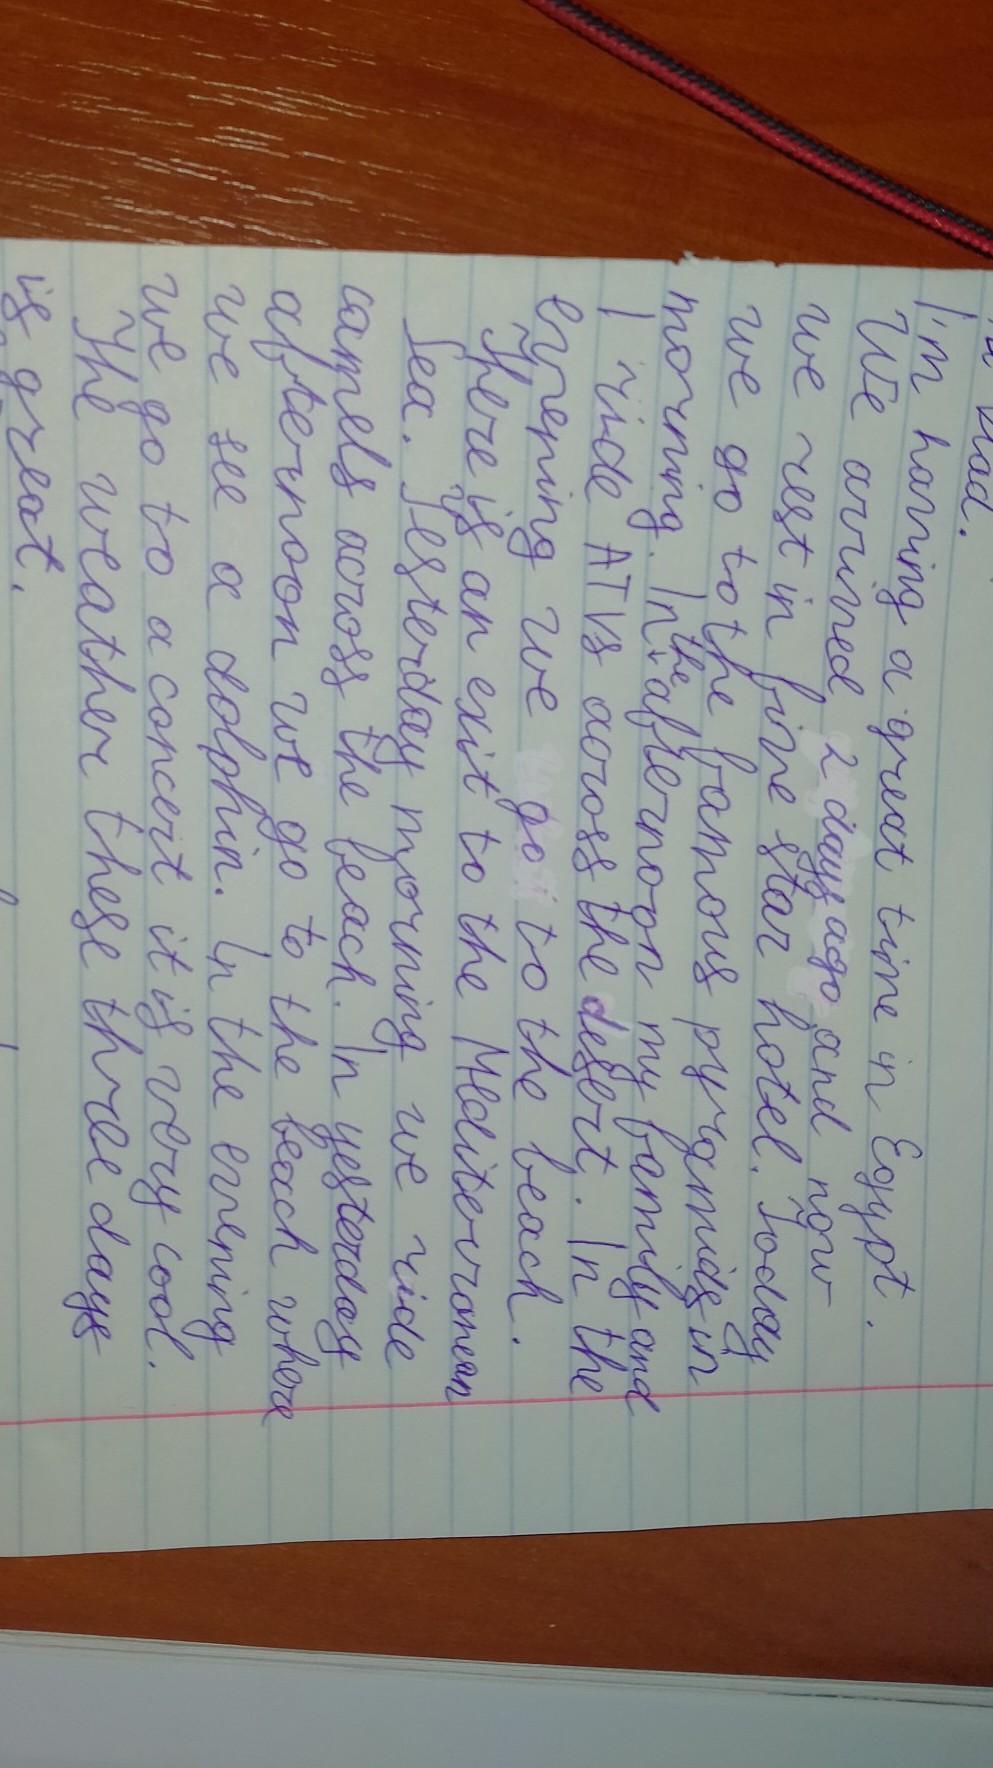 I'm having a great time in Egypt.
We arrived 2 days ago and now
we rest in five star hotel. Today
we go to the famous pyramids in
morning. In the afternoon my family and
I ride ATVs across the desert. In the
evening we go to the beach.
There is an exit to the Mediterranean
Sea. Yesterday morning we ride
camels across the beach. In yesterday
afternoon we go to the beach where
we see a dolphin. In the evening
we go to a concert it is very cool.
The weather these three days
is great.